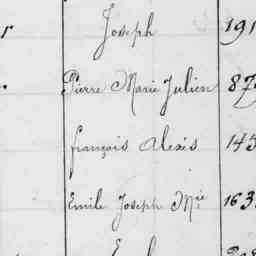 Joseph 191
Pierre Marie Julien 87
françois alexis 145
Emile Joseph Mie 163